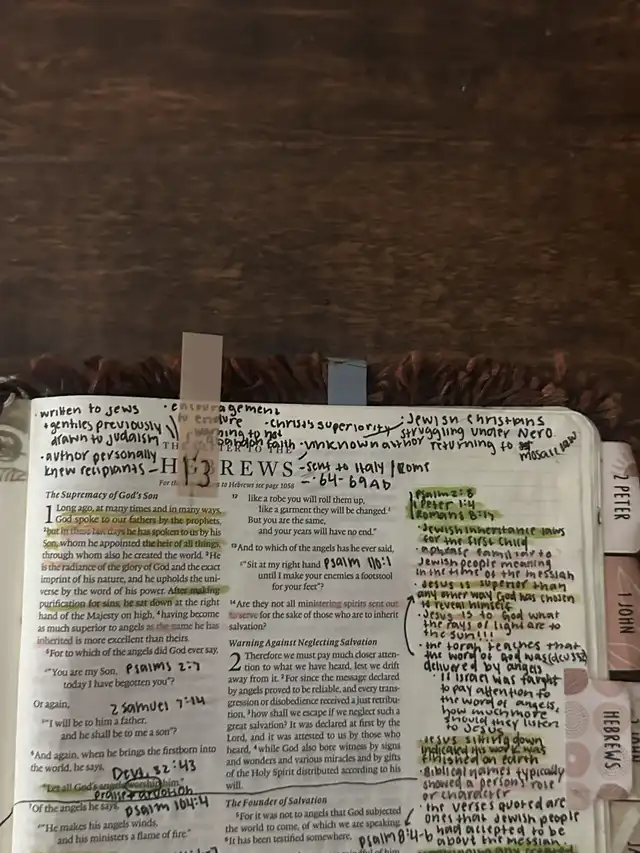 • written to Jews
+ gentiles previously
drawn to Judaism
• author personally
knew recipiants -
• encouragement
to endure
abandon faith
- Christ's superiority
• unknown author
: Jewish Christians
struggling under Nero
returning to
mosaic law
HEBREWS
13
- sent to Italy / Rome
- ~64-69AD
to Hebrews see page 1058
The Supremacy of God's Son
1 Long ago, at many times and in many ways,
God spoke to our fathers by the prophets,
2 but in these last days he has spoken to us by his
Son, whom he appointed the heir of all things,
through whom also he created the world. 3 He
is the radiance of the glory of God and the exact
imprint of his nature, and he upholds the uni-
verse by the word of his power. After making
purification for sins, he sat down at the right
hand of the Majesty on high, 4 having become
as much superior to angels as the name he has
inherited is more excellent than theirs.
5 For to which of the angels did God ever say,
"You are my Son, psalms 2:7
today I have begotten you"?
Or again, 2 samuel 7:14
"I will be to him a father,
and he shall be to me a son"?
6 And again, when he brings the firstborn into
the world, he says, Deut. 32:43
"Let all God's angels worship him."
praise + adoration
7 Of the angels he says, psalm 104:4
"He makes his angels winds,
and his ministers a flame of fire."
12 like a robe you will roll them up,
like a garment they will be changed.
But you are the same,
and your years will have no end."
13 And to which of the angels has he ever said,
"Sit at my right hand psalm 110:1
until I make your enemies a footstool
for your feet"?
14 Are they not all ministering spirits sent out
to serve for the sake of those who are to inherit
salvation?
Warning Against Neglecting Salvation
2 Therefore we must pay much closer atten-
tion to what we have heard, lest we drift
away from it. 2 For since the message declared
by angels proved to be reliable, and every trans-
gression or disobedience received a just retribu-
tion, 3 how shall we escape if we neglect such a
great salvation? It was declared at first by the
Lord, and it was attested to us by those who
heard, 4 while God also bore witness by signs
and wonders and various miracles and by gifts
of the Holy Spirit distributed according to his
will.
The Founder of Salvation
5 For it was not to angels that God subjected
the world to come, of which we are speaking.
6 It has been testified somewhere, psalm 8:4-6
psalm 2:8
1 Peter 1:4
Romans 8:17
• Jewish inheritance laws
for the first child
• a phrase familiar to
Jewish people meaning
in the time of the messiah
• Jesus is superior than
any other way God has chosen
to reveal himself
• Jesus is to God what
the rays of light are to
the sun!!!
• the Torah teaches that
the word of God was
delivered by angels
- if Israel was taught
to pay attention to
the word of angels,
how much more
should they listen
to Jesus
• Jesus sitting down
indicated his work was
finished on earth
• Biblical names typically
showed a persons role
or character
• the verses quoted are
ones that Jewish people
had accepted to be
about the messiah
2 PETER
1 JOHN
HEBREWS